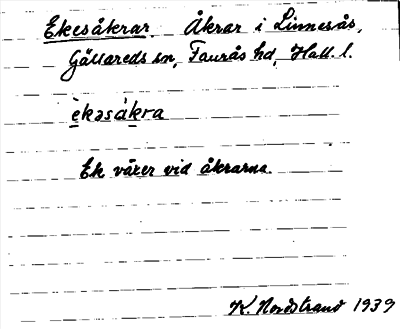 Ekesåkrar. Åkrar i Linnesås,
Gällareds sn, Faurås hd, Hall. l.
èkəsàkra
Ek växer vid åkrarna.
K. Nordstrand 1939